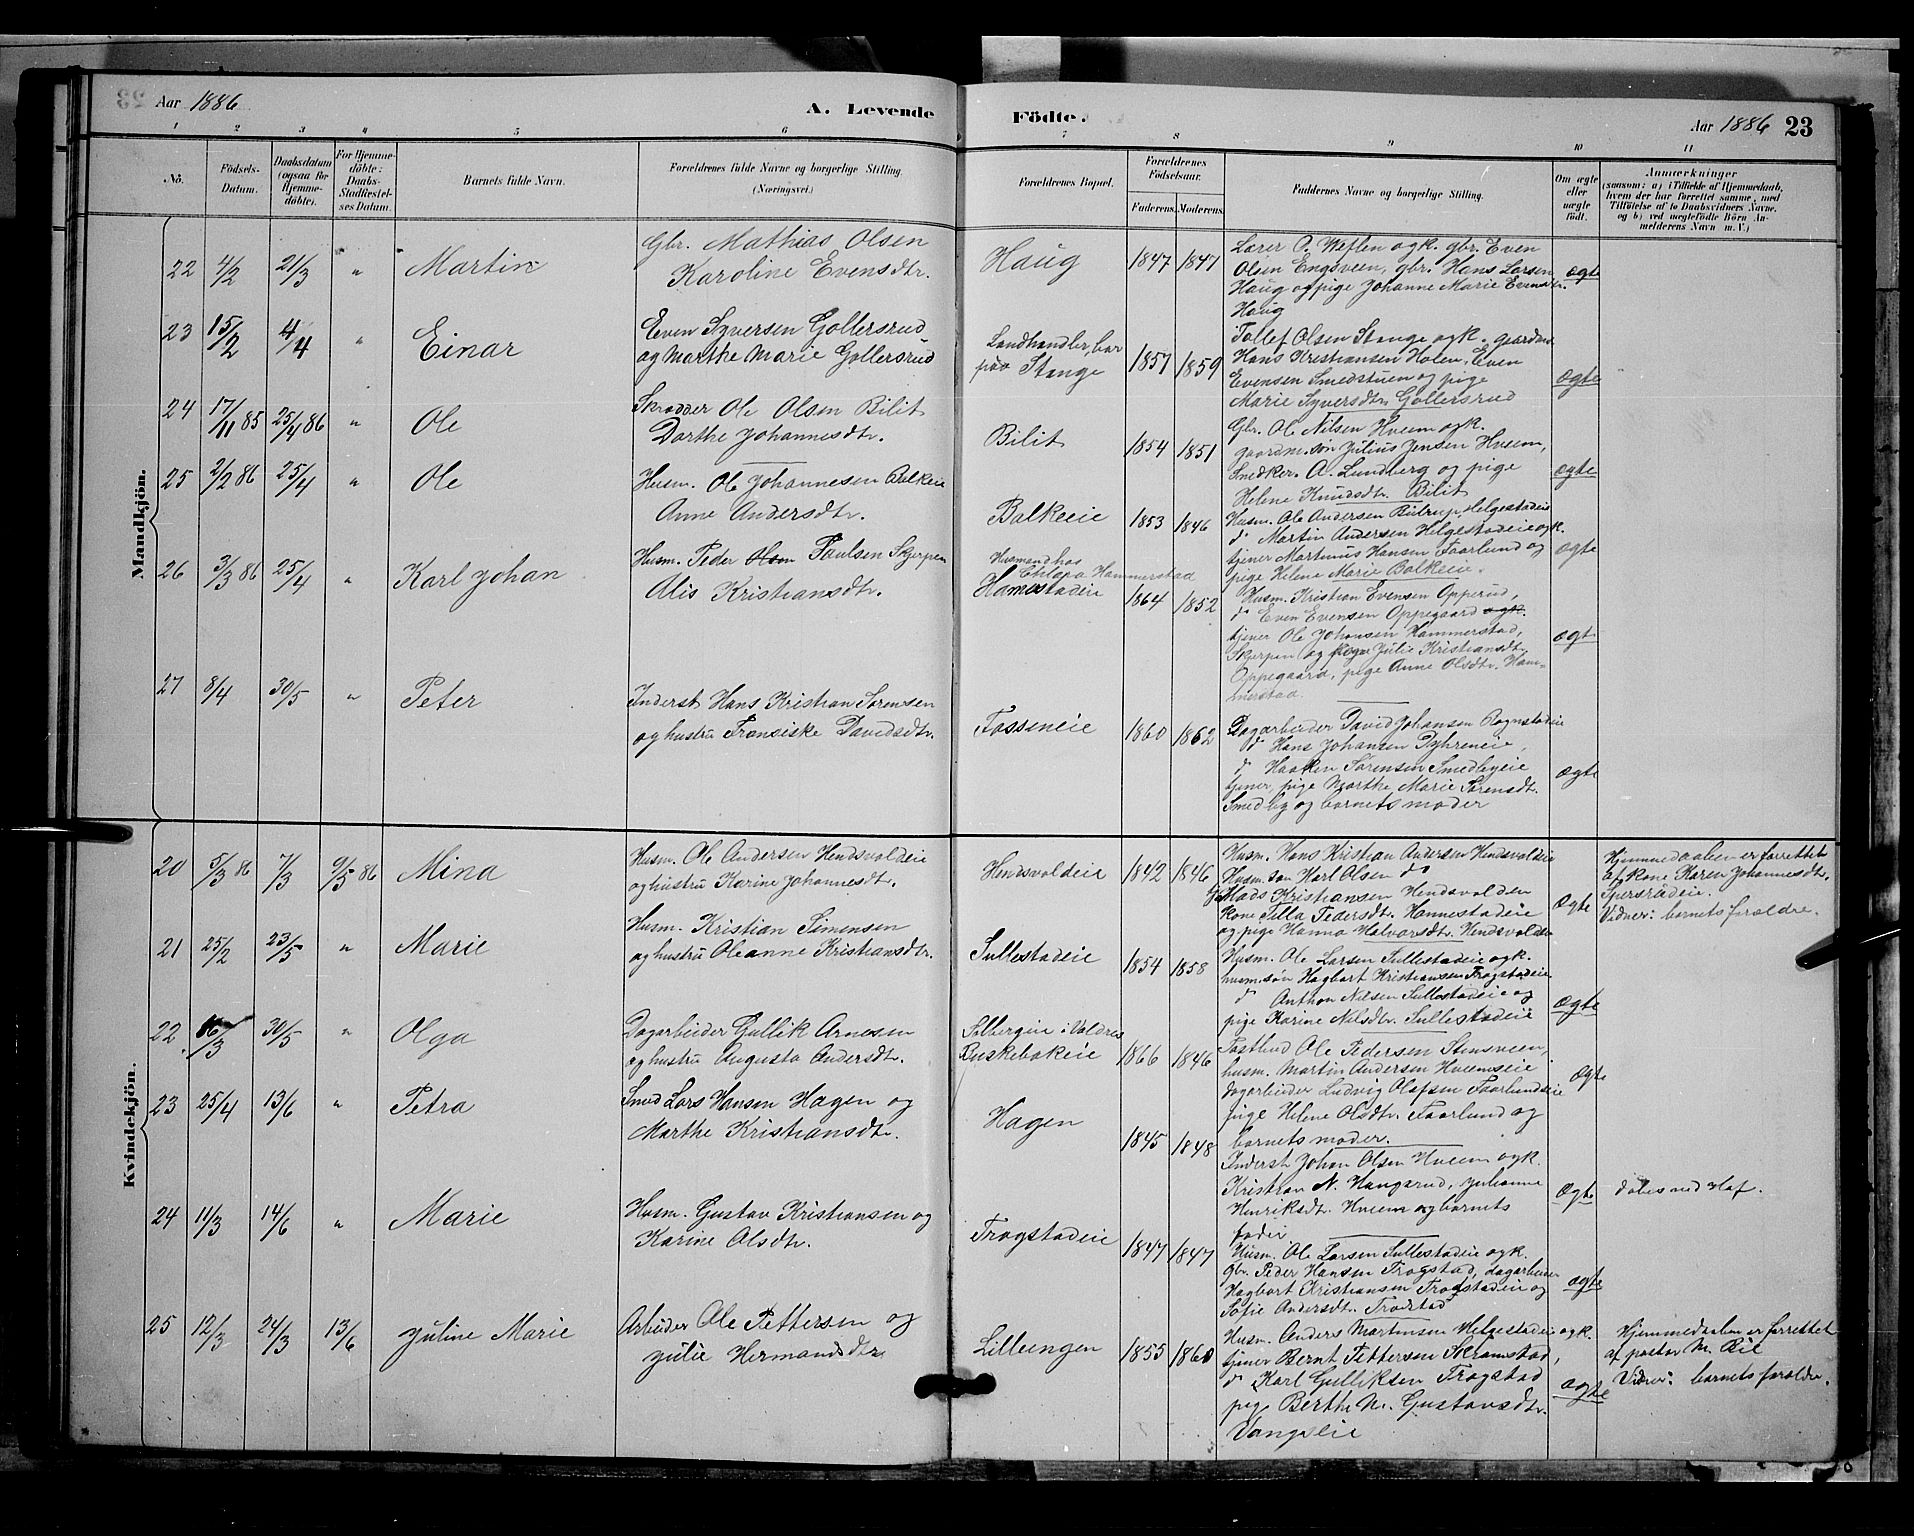 Aar 1886
A. Levende
Födte.
Aar 1886 23
1 2 3 4 5 6 7 8 9 10 11
No.
Födsels-Datum.
Daabsdatum (ogsaa for Hjemme-döbte).
For Hjemme-döbte: Daabs-Stadfæstel-ses Datum.
Barnets fulde Navn.
Forældrenes fulde Navne og borgerlige Stilling (Næringsvei.)
Forældrenes Bopæl.
Forældrenes Födselsaar.
Faderens. Moderens.
Faddernes Navne og borgerlige Stilling.
Om ægte eller uægte födt.
Anmærkninger
(saasom: a) i Tilfælde af Hjemmedaab,
hvem der har forrettet samme, med
Tilföielse af to Daabsvidners Navne,
og b) ved uægtefödte Börn An-
melderens Navn m. V.)
Mandkjön.
22 4/2 21/3 " Martin
Gbr. Mathias Olsen
Karoline Evensdtr.
Haug 1847 1847
Lærer O. Weflen og k. gbr. Even
Olsen Engsveen, gbr. Hans Larsen
Haug og pige Johanne Marie Evensdtr.
Haug
ægte
23 15/2 4/4 " Einar
Even Syversen Gollersrud
og Marthe Marie Gollersrud
Landhandler, bor
paa Stange 1857 1859
Tollef Olsen Stange og k. gaardm.
Hans Kristiansen Holen, Even
Evensen Smedstuen og pige
Marie Syversdtr. Gollersrud
ægte
24 17/11 85 25/4 86 " Ole
Skrædder Ole Olsen Bilit
Dorthe Johannesdtr.
Bilit 1854 1851
Gbr. Ole Nilsen Hveem og k.
gaardm. søn Julius Jensen Hveem,
Snedker. A. Lundberg og pige
Helene Knudsdtr. Bilit
ægte
25 2/2 86 25/4 " Ole
Husm. Ole Johannesen Balkeie
Anne Andersdtr.
Balkeeie 1853 1846
Husm. Ole Andersen Bilrup, Helgestadeie
d° Martin Andersen Helgestadeie og k.
tjener Martinus Hansen Faarlund og
pige Helene Marie Balkeie.
ægte
26 3/3 86 25/4 " Karl Johan
Husm. Peder Olsen Paulsen Skjerpen
Alis Kristiansdtr.
Husmand hos
Hammerstad
Hamestadeie 1864 1852
Husm. Kristian Evensen Opperud,
d° Even Evensen Oppegaard og k.
tjener Ole Johansen Hammerstad,
Skjerpen og pige Julie Kristiansdtr.
Oppegaard, pige Anne Olsdtr. Ham-
merstad.
ægt.
27 8/4 30/5 " Peter
Inderst Hans Kristian Sørensen
og hustru Fransiske Davidsdtr.
Fosseneie 1860 1862
Dagarbeider David Johansen Rognstadeie
d° Hans Johansen Dyhreneie,
d° Haaken Sørensen Smedbyeie
tjener, pige Marthe Marie Sørensdtr.
Smedby og barnets moder
ægte
Kvindekjön.
20 5/3 86 7/3 9/5 86 Mina
Husm. Ole Andersen Hendsvoldeie
og hustru Karine Johannesdtr.
Hendsvoldeie 1842 1846
Husm. Hans Kristian Andersen Hendsvoldeie
Husm. søn Karl Olsen d°
Mads Kristiansen Hendsvolden
Kone Tilla Pedersdtr. Hannestadeie
og pige Hanna Halvorsdtr. Hendsvolden
Ægte
Hjemmedaaben er forrettet
af kone Karen Johannesdtr.
Sperstadeie.
Vidner: barnets foreldre.
21 25/2 23/5 " Marie
Husm. Kristian Simensen
og hustru Oleanne Kristiansdtr.
Sullestadeie 1854 1858
Husm. Ole Larsen Sullestadeie og k.
husm. søn Hagbart Kristiansen Trogstadeie
d° Anthon Nilsen Sullestadeie og
pige Karine Nilsdtr. Sullestadeie
Ægte
22 16/3 30/5 " Olga
Dagarbeider Gullik Arnesen
og hustru Augusta Andersdtr.
i Valdres
Buskebakeie 1866 1846
Postbud Ole Pedersen Stensveen,
husm. Martin Andersen Hveemseie
dagarbeider Ludvig Olafsen Faarlundeie
pige Helene Olsdtr. Faarlund og
barnets moder.
Ægte
23 25/4 13/6 " Petra
Smed Lars Hansen Hagen og
Marthe Kristiansdtr.
Hagen 1845 1848
Inderst Johan Olsen Hveem og k.
Kristian N. Hangsrud, Julianne
Henriksdtr. Hveem og barnets
fader
Ægte
24 11/3 14/6 " Marie
Husm. Gustav Kristiansen og
Karine Olsdtr.
Trogstadeie 1847 1847
Husm. Ole Larsen Sullestadeie og k.
Gbr. Peder Hansen Trogstad, dagarbeider
Hagbart Kristiansen Trogstadeie og
Sofie Andersdtr. Trogstad
ægte
25 12/3 24/3 13/6 Juline Marie
Arbeider Ole Pettersen og
Julie Hermandsdtr.
Lilleengen 1855 1860
Husm. Anders Martinsen Helgestadeie og k.
tjener Bernt Pettersen Skramstad,
d° Karl Gulliksen Trogstad
pige Berthe M. Gustavsdtr.
Vangseie
ægte
Hjemmedaaben er forrettet
af pastor N.
Vidner: barnets foreldre.